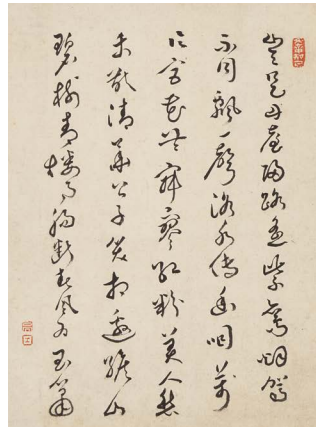 豈是丹臺歸路遙紫鸞煙駕
不同飄一聲洛水傳幽咽萬
片宮花共寂寥紅粉美人愁
未散清華公子笑相邀緱山
碧樹青樓月腸斷春風為玉簫